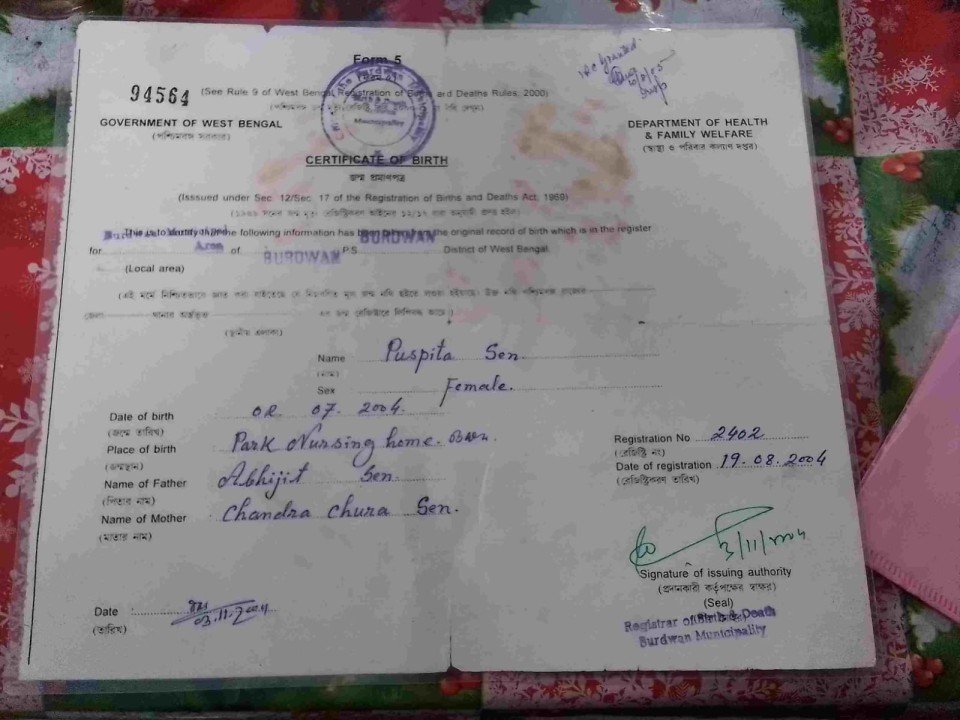 Form 5
94564
(See Rule 9 of West Bengal Registration of Births and Deaths Rules, 2000)
GOVERNMENT OF WEST BENGAL
(পশ্চিমবঙ্গ সরকার)
DEPARTMENT OF HEALTH
& FAMILY WELFARE
(স্বাস্থ্য ও পরিবার কল্যাণ দপ্তর)
CERTIFICATE OF BIRTH
জন্ম প্রমাণপত্র
(Isssued under Sec. 12/Sec. 17 of the Registration of Births and Deaths Act, 1969)
This is to certify that the following information has been taken from the original record of birth which is in the register
for Area of BURDWAN P.S. BURDWAN District of West Bengal.
(Local area)
(স্থানীয় এলাকা)
Name Puspita Sen.
(নাম)
Sex Female.
Date of birth 02. 07. 2004.
(জন্ম তারিখ)
Place of birth Park Nursing home.
(জন্মস্থান)
Name of Father Abhijit Sen.
(পিতার নাম)
Name of Mother Chandra Chura Sen.
(মাতার নাম)
Registration No 2402
(রেজিষ্ট্রি নং)
Date of registration 19.08.2004
(রেজিষ্ট্রিকরণ তারিখ)
3/11/2004
Signature of issuing authority
(প্রদানকারী কর্তৃপক্ষের স্বাক্ষর)
(Seal)
Registrar of Birth & Death
Burdwan Municipality
Date : 03.11.2004
(তারিখ)